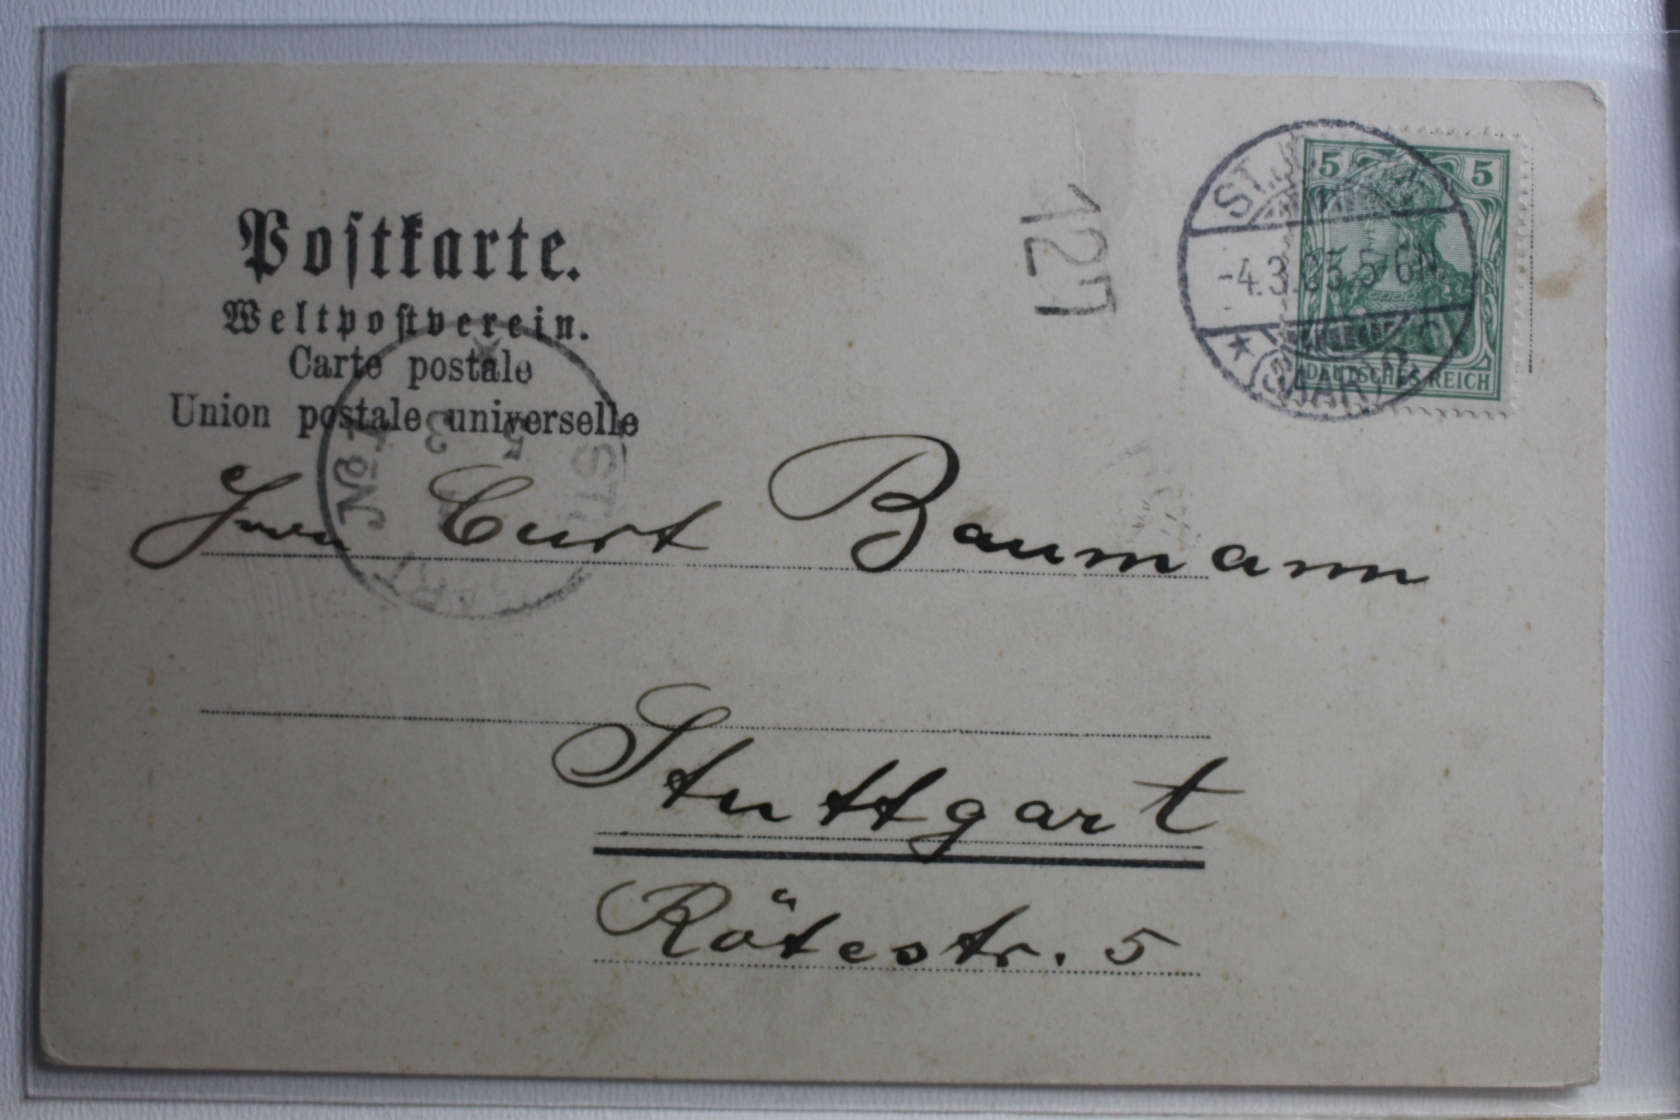 Postkarte.
Weltpostverein.
Carte postale
Union postale universelle
127
5 5
-4.3.03.5-6N
* (SAAR)
DEUTSCHES REICH
5
3
No 1
Herrn Curt Baumann
Stuttgart
Rötestr. 5